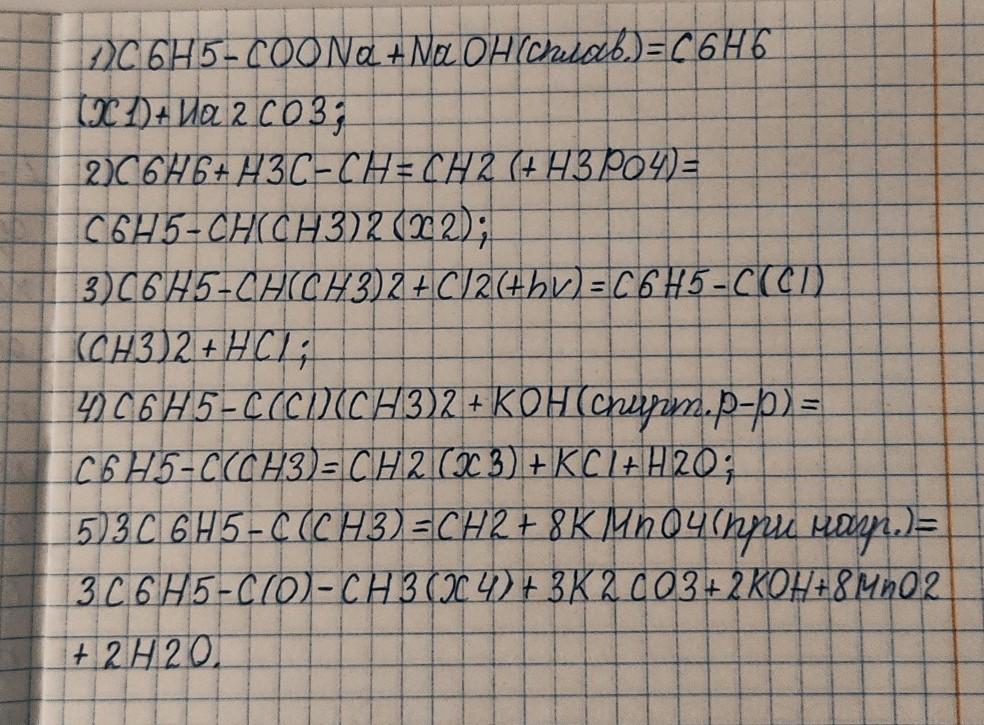 1)C6H5-COONa+NaOH(сплав.)=C6H6
(X1)+Na2CO3;
2)C6H6+H3C-CH=CH2(+H3PO4)=
C6H5-CH(CH3)2(X2);
3)C6H5-CH(CH3)2+Cl2(+hv)=C6H5-C(Cl)
(CH3)2+HCl;
4)C6H5-C(Cl)(CH3)2+KOH(спирт.р-р)=
C6H5-C(CH3)=CH2(X3)+KCl+H2O;
5)3C6H5-C(CH3)=CH2+8KMnO4(при нагр.)=
3C6H5-C(O)-CH3(X4)+3K2CO3+2KOH+8MnO2
+2H2O.